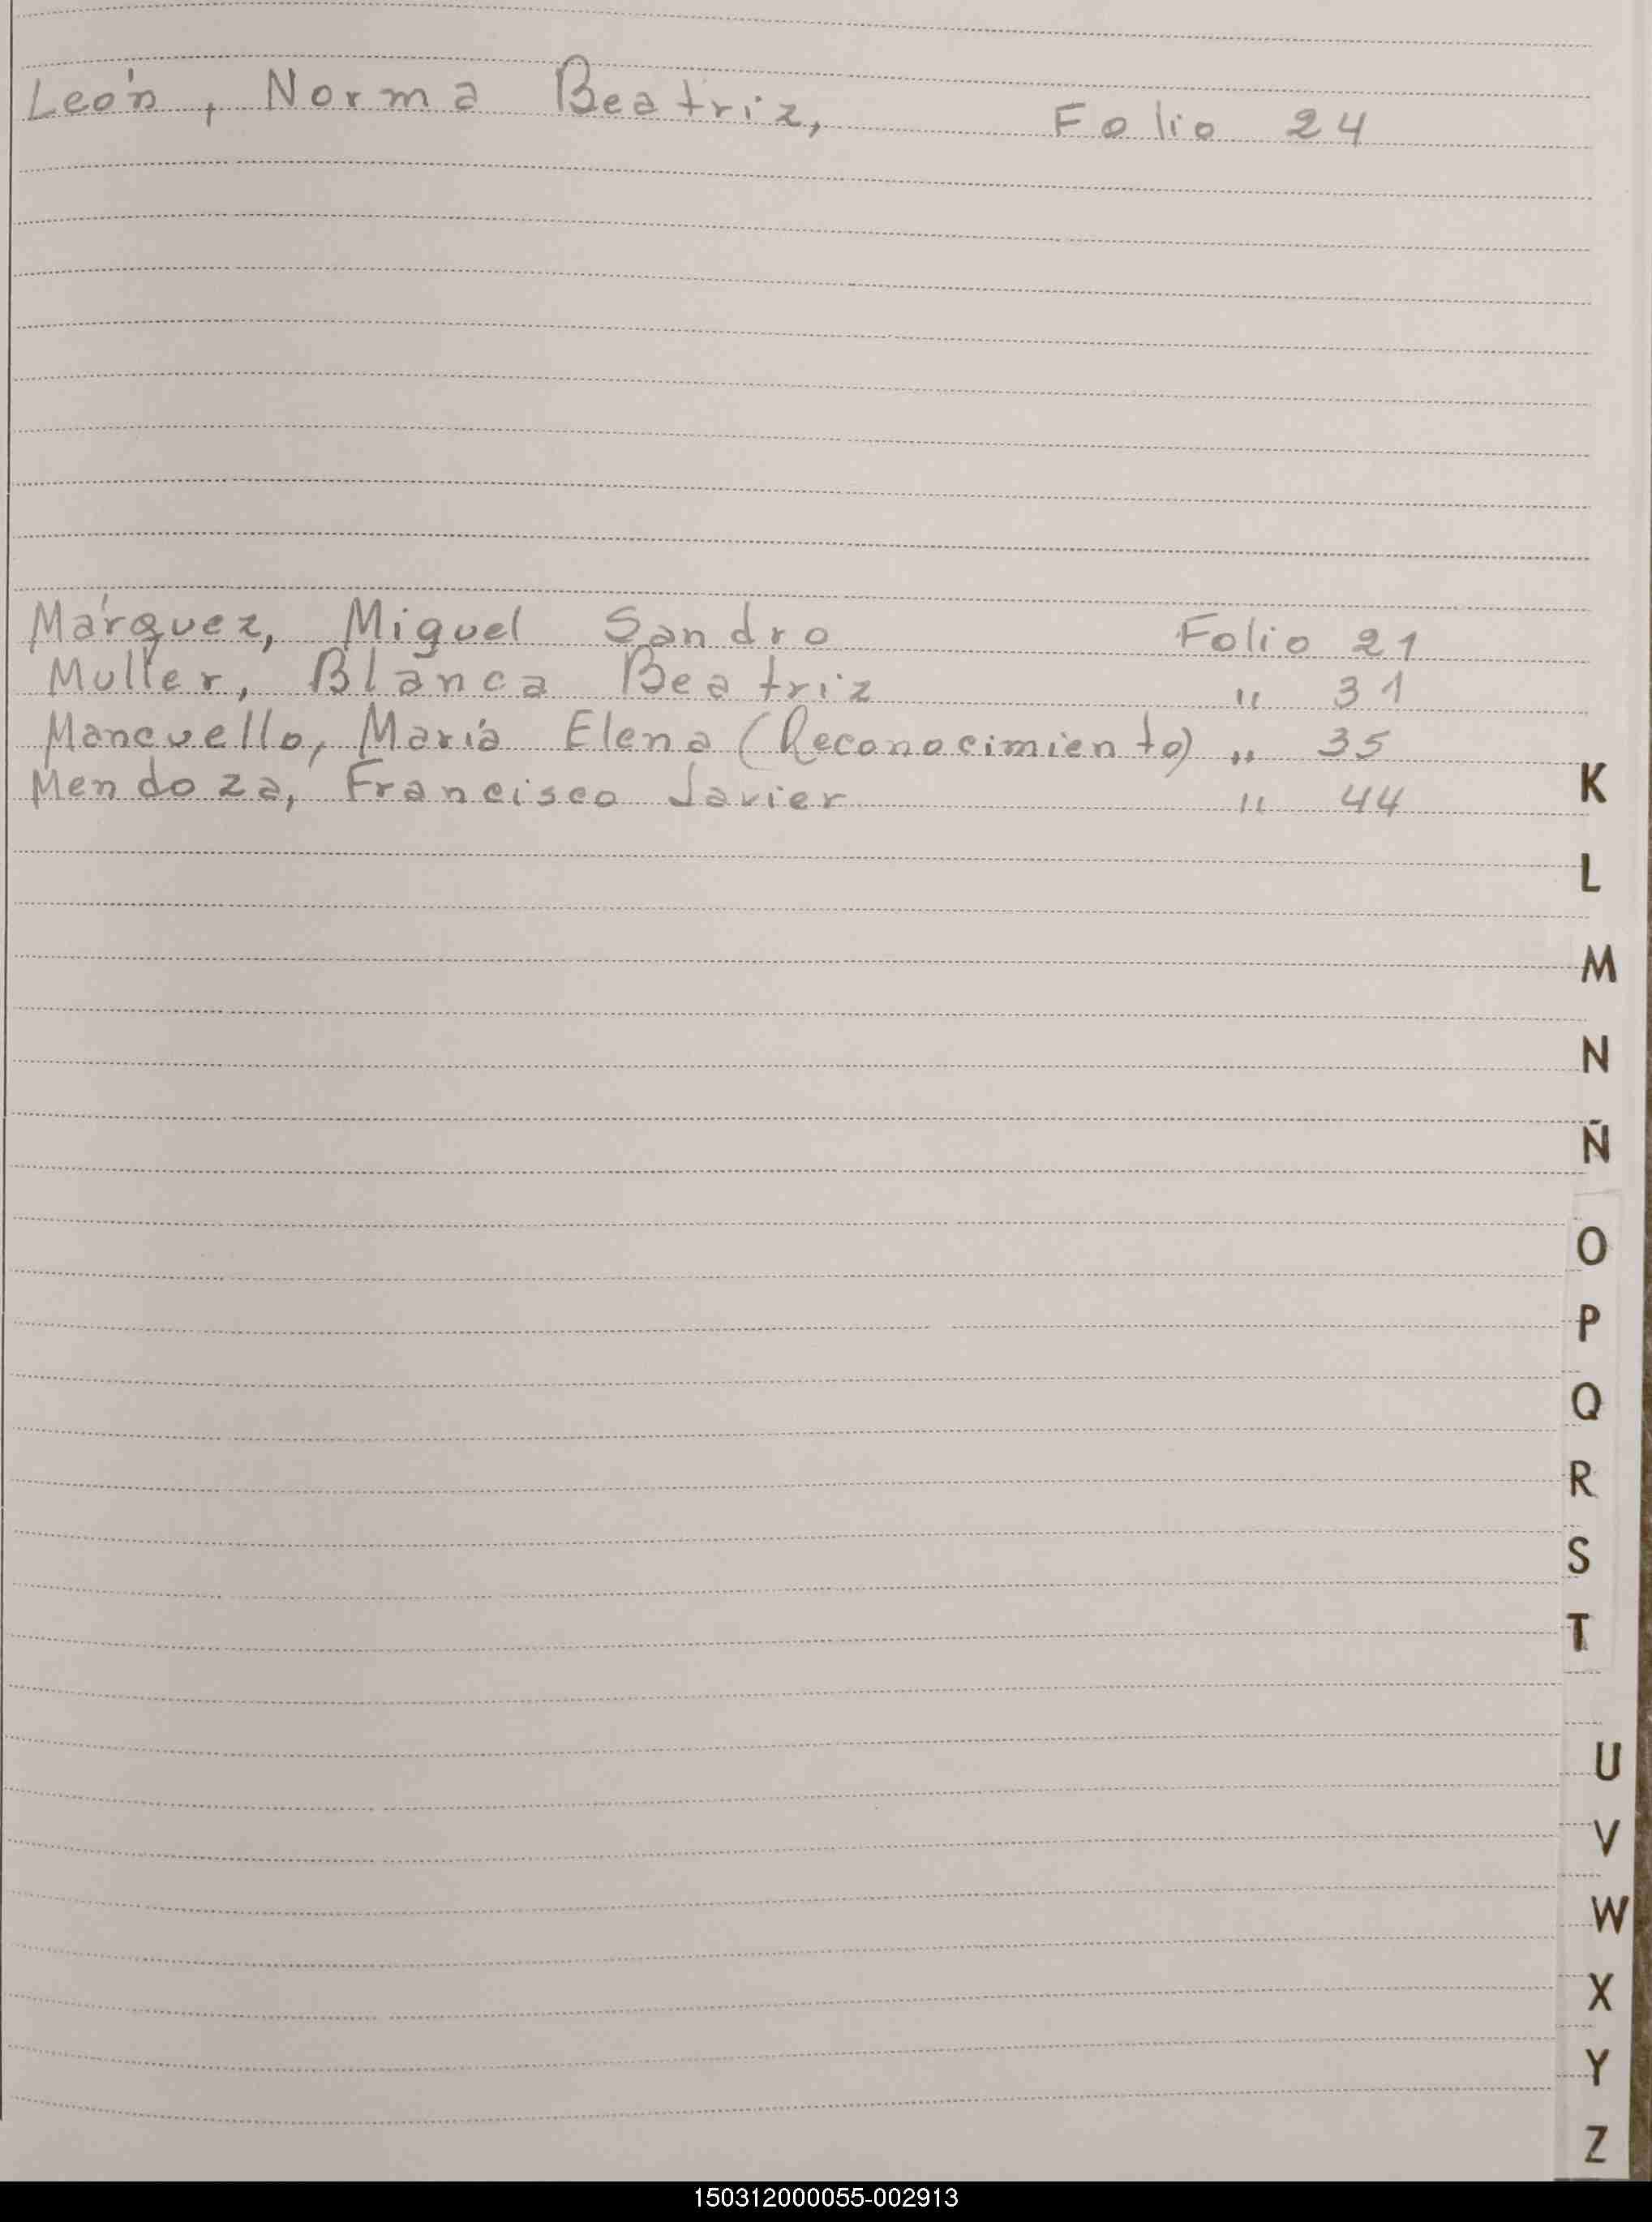 León, Norma Beatriz, Folio 24
Márquez, Miguel Sandro Folio 21
Muller, Blanca Beatriz " 31
Mancuello, María Elena (Reconocimiento) " 35
Mendoza, Francisco Javier " 44
K
L
M
N
Ñ
O
P
Q
R
S
T
U
V
W
X
Y
Z
150312000055-002913